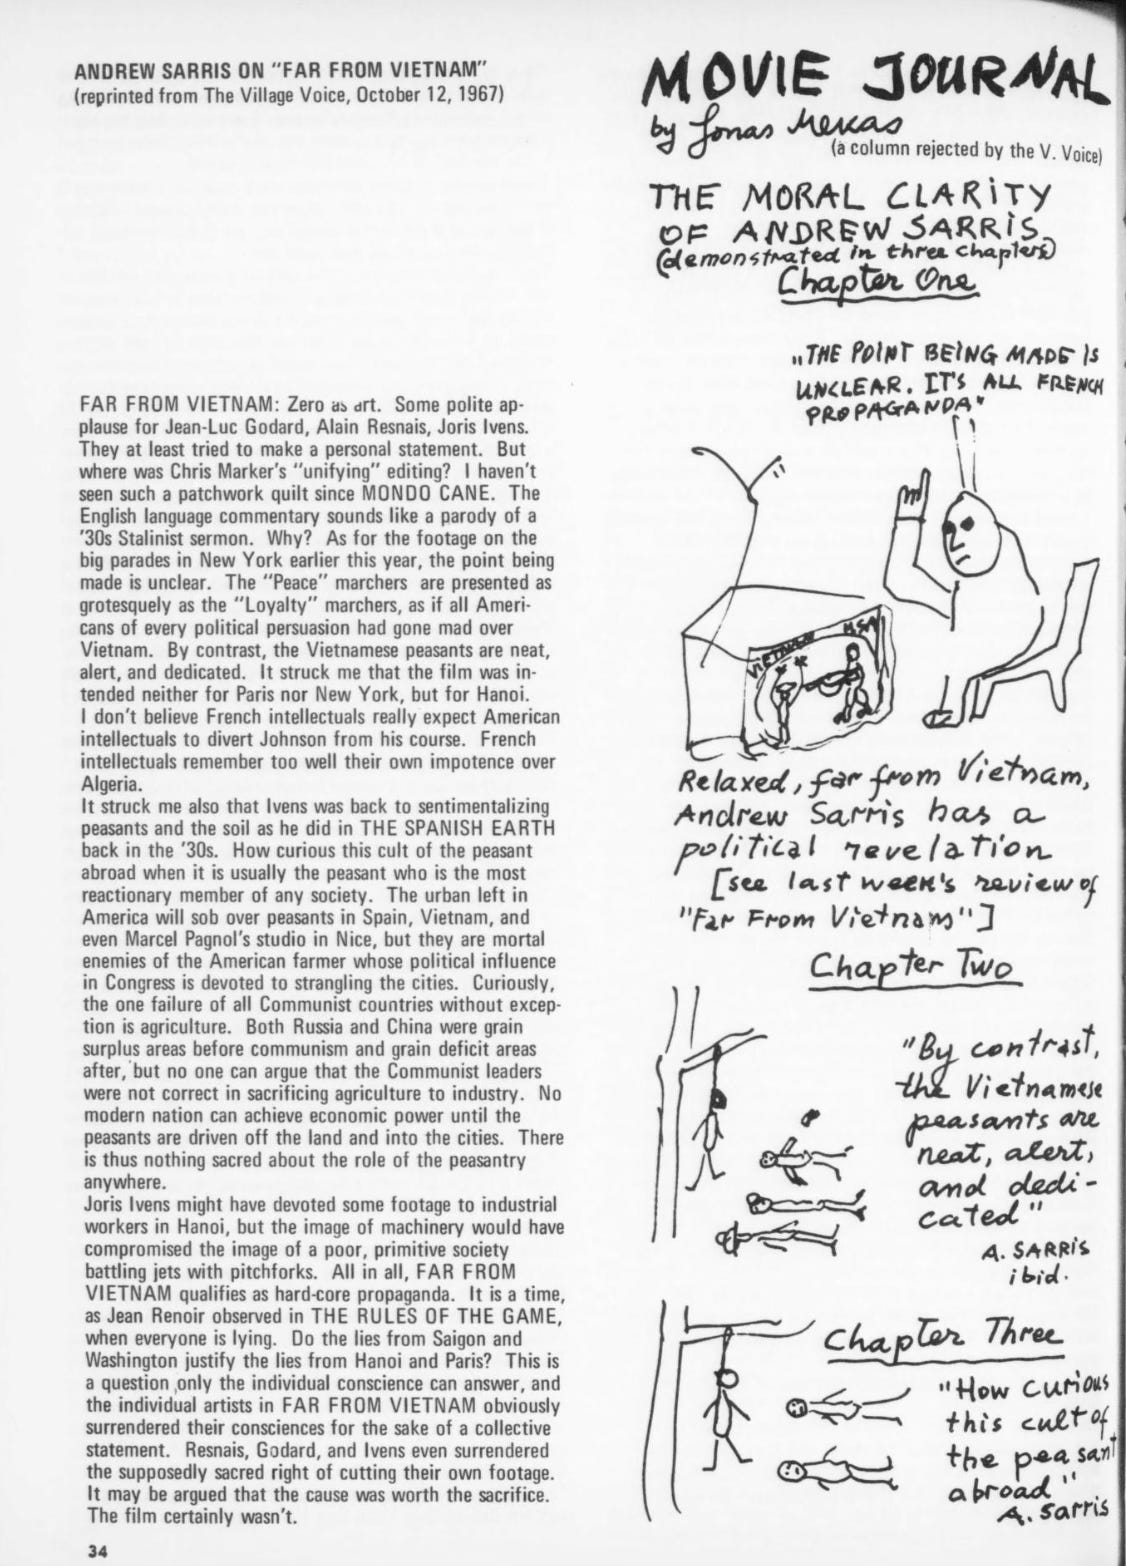 ANDREW SARRIS ON "FAR FROM VIETNAM"
(reprinted from The Village Voice, October 12, 1967)
FAR FROM VIETNAM: Zero as art. Some polite ap-
plause for Jean-Luc Godard, Alain Resnais, Joris Ivens.
They at least tried to make a personal statement. But
where was Chris Marker's "unifying" editing? I haven't
seen such a patchwork quilt since MONDO CANE. The
English language commentary sounds like a parody of a
'30s Stalinist sermon. Why? As for the footage on the
big parades in New York earlier this year, the point being
made is unclear. The "Peace" marchers are presented as
grotesquely as the "Loyalty" marchers, as if all Ameri-
cans of every political persuasion had gone mad over
Vietnam. By contrast, the Vietnamese peasants are neat,
alert, and dedicated. It struck me that the film was in-
tended neither for Paris nor New York, but for Hanoi.
I don't believe French intellectuals really expect American
intellectuals to divert Johnson from his course. French
intellectuals remember too well their own impotence over
Algeria.
It struck me also that Ivens was back to sentimentalizing
peasants and the soil as he did in THE SPANISH EARTH
back in the '30s. How curious this cult of the peasant
abroad when it is usually the peasant who is the most
reactionary member of any society. The urban left in
America will sob over peasants in Spain, Vietnam, and
even Marcel Pagnol's studio in Nice, but they are mortal
enemies of the American farmer whose political influence
in Congress is devoted to strangling the cities. Curiously,
the one failure of all Communist countries without excep-
tion is agriculture. Both Russia and China were grain
surplus areas before communism and grain deficit areas
after, but no one can argue that the Communist leaders
were not correct in sacrificing agriculture to industry. No
modern nation can achieve economic power until the
peasants are driven off the land and into the cities. There
is thus nothing sacred about the role of the peasantry
anywhere.
Joris Ivens might have devoted some footage to industrial
workers in Hanoi, but the image of machinery would have
compromised the image of a poor, primitive society
battling jets with pitchforks. All in all, FAR FROM
VIETNAM qualifies as hard-core propaganda. It is a time,
as Jean Renoir observed in THE RULES OF THE GAME,
when everyone is lying. Do the lies from Saigon and
Washington justify the lies from Hanoi and Paris? This is
a question only the individual conscience can answer, and
the individual artists in FAR FROM VIETNAM obviously
surrendered their consciences for the sake of a collective
statement. Resnais, Godard, and Ivens even surrendered
the supposedly sacred right of cutting their own footage.
It may be argued that the cause was worth the sacrifice.
The film certainly wasn't.
34
MOVIE JOURNAL
by Jonas Mekas
(a column rejected by the V. Voice)
THE MORAL CLARITY
OF ANDREW SARRIS
(demonstrated in three chapters)
Chapter One
„THE POINT BEING MADE IS
UNCLEAR. IT'S ALL FRENCH
PROPAGANDA"
VIETNAM USA
Relaxed, far from Vietnam,
Andrew Sarris has a
political revelation
[see last week's review of
"Far From Vietnam"]
Chapter Two
"By contrast,
the Vietnamese
peasants are
neat, alert,
and dedi-
cated"
A. SARRIS
ibid.
Chapter Three
"How curious
this cult of
the peasant
abroad"
A. Sarris